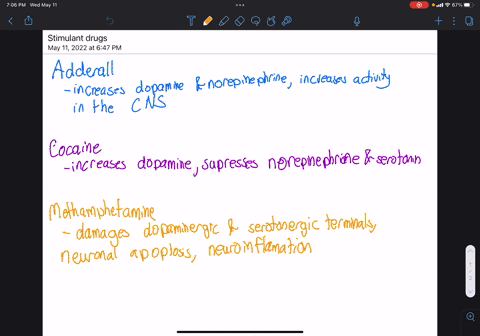 7:06 PM Wed May 11
67%
Stimulant drugs
May 11, 2022 at 6:47 PM
Adderall
-increases dopamine & norepinephrine, increases activity
in the CNS
Cocaine
-increases dopamine, supresses norepinephrine & serotonin
Methamphetamine
- damages dopaminergic & serotonergic terminals,
neuronal apoptosis, neuroinflamation